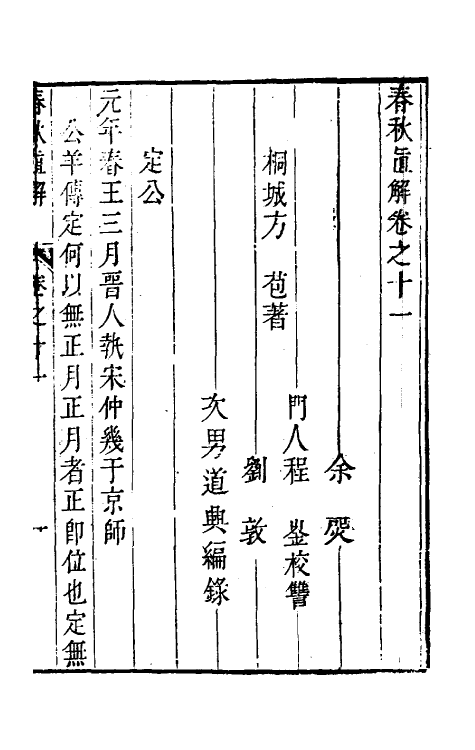 春秋直解卷之十一
余熂
桐城方苞著
門人程崟校讐
劉敦
次男道興編錄
定公
元年春王三月晉人執宋仲幾于京師
公羊傳定何以無正月正月者正卽位也定無
春秋直解 卷之十一 一